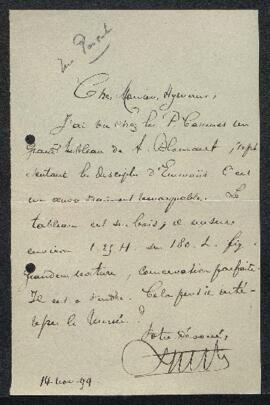 Cher Monsieur Hymans,
J'ai vu chez les P Carmes un
grand tableau de A. Bloemaert, repré
sentant les disciples d'Emmaüs C'est
un œuvre vraiment remarquable. Le
tableau est sur bois, il mesure
environ 1.25 H. sur 180. L. fig.
grandeur nature, conservation parfaite
Il est à vendre. Cela peut-il inté-
resser le Musée?
Votre dévoué,
14 nov. 99